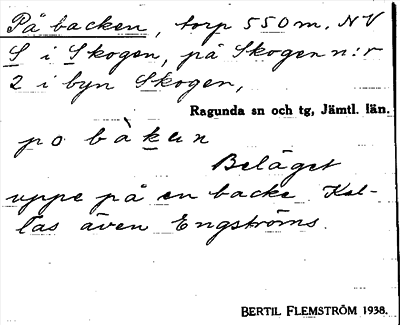 På backen, torp 550 m. NV
S i Skogen, på Skogen n:r
2 i byn Skogen,
Ragunda sn och tg, Jämtl. län.
po bàken
Beläget
uppe på en backe. Kal-
las även Engströms.
BERTIL FLEMSTRÖM 1938.